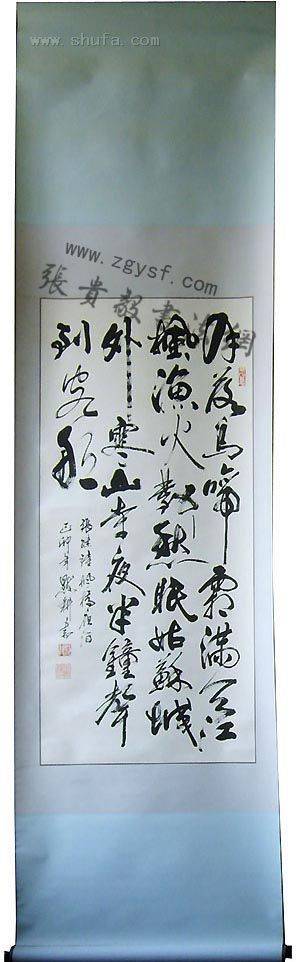 www.shufa.com
www.zgysf.com
張貴毅書法網
月落烏啼霜滿天江
楓漁火對愁眠姑蘇城
外寒山寺夜半鐘聲
到客船
張继诗楓橋夜泊
己卯年